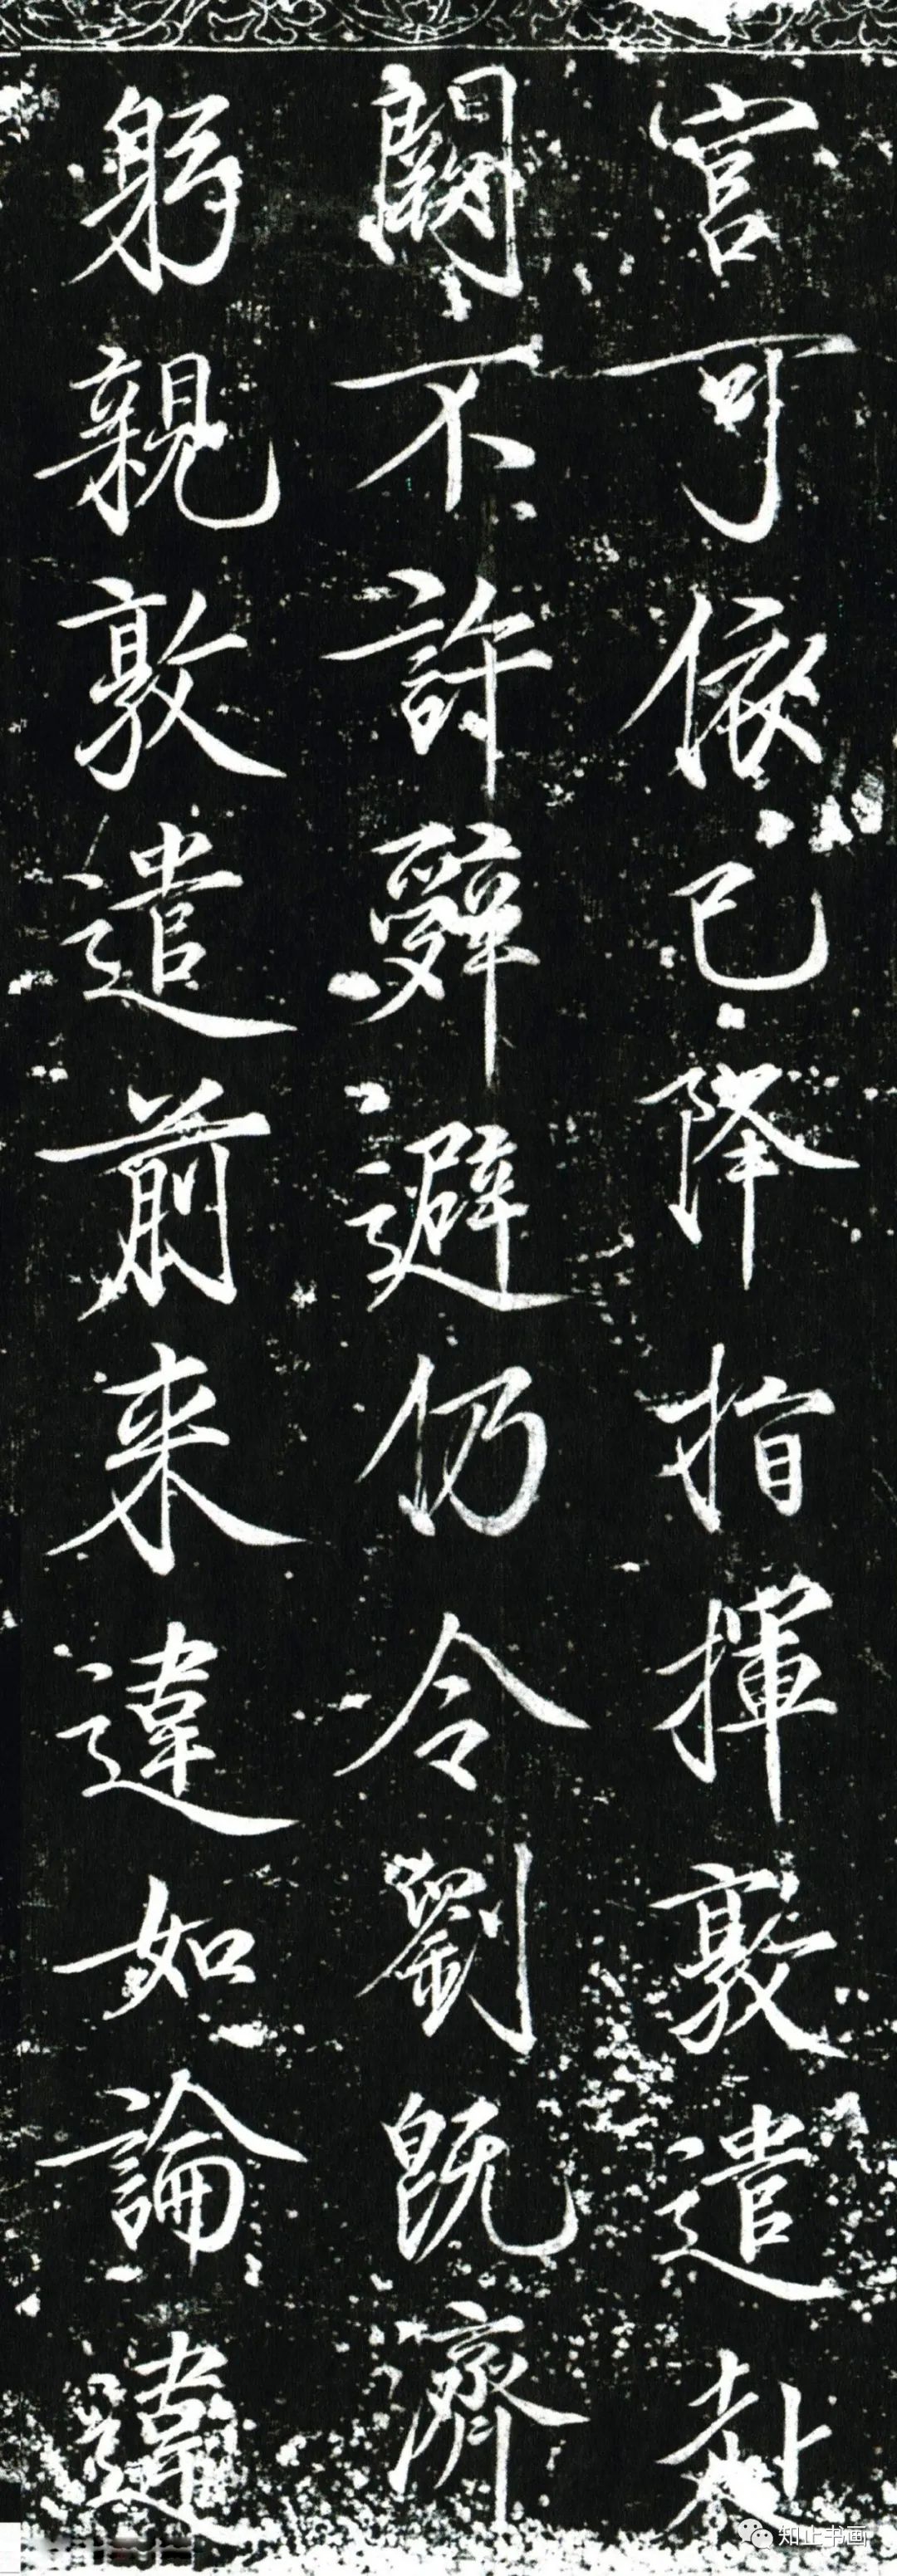 官可依已降指揮敦遣赴
闕不許辭避仍令劉既濟
躬親敦遣前来違如論違
知止书画